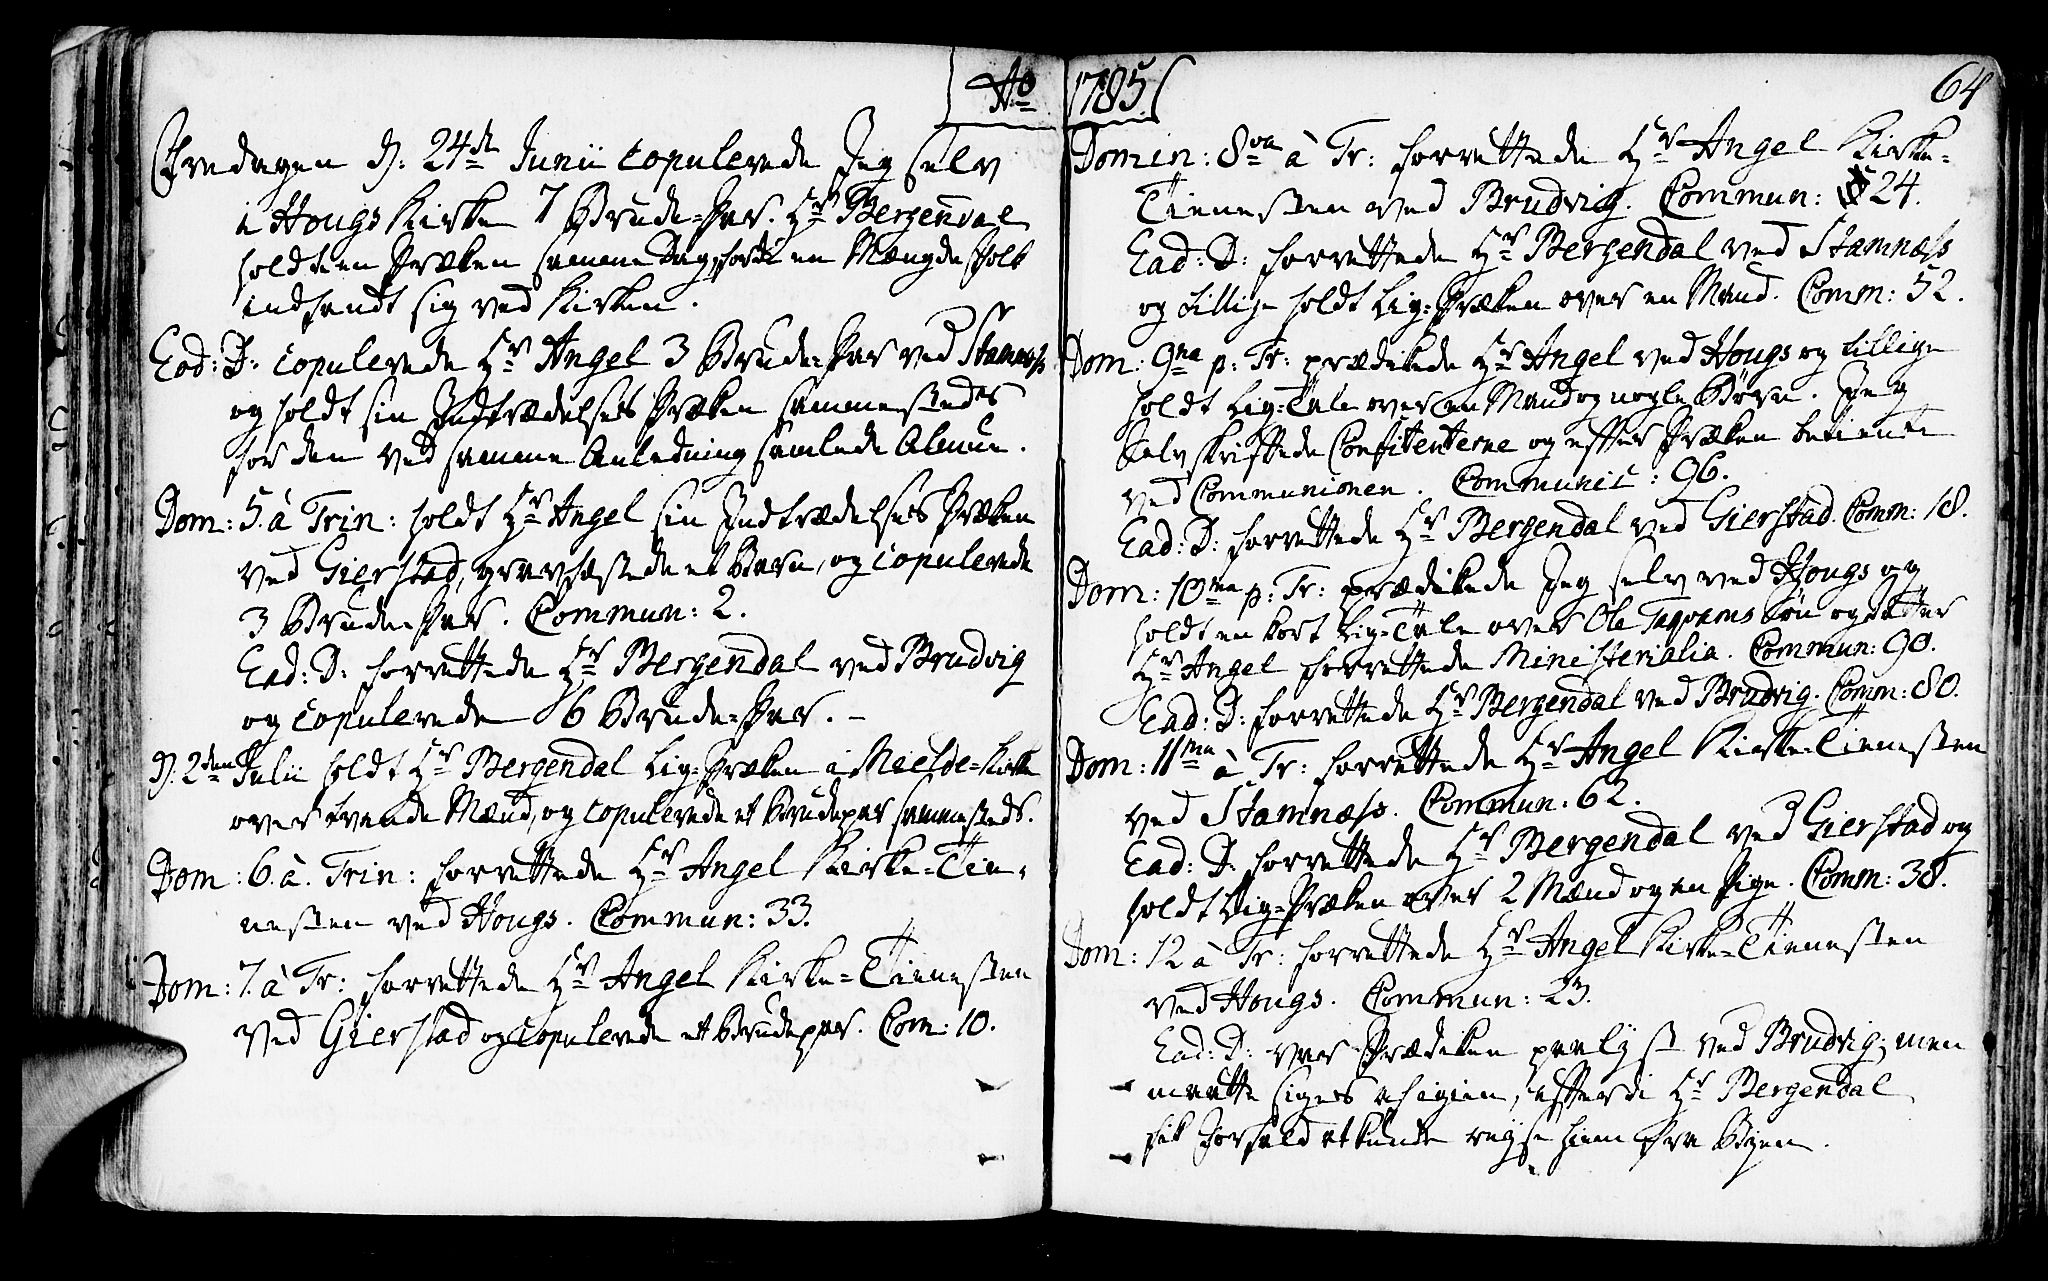 Ao 1785
64
Fredagen d: 24de Junii copulerede Jeg selv
i Hougs Kirke 7 Brude-Par. Hr Bergendal
holdt en Præken samme Dag, fordi en Mængde Folk
indfandt sig ved Kirken.
Ead: D: copulerede Hr Angel 3 Brude-Par ved Stamnæss
og holdt sin Indtrædelses Præken sammestedes
for den ved samme Anledning samlede Almue.
Dom: 5. à Trin: holdt Hr Angel sin Indtrædelses Præken
ved Gierstad, gravfæstede et Barn, og copulerede
3 Brude-Par. Commun: 2.
Ead: D: forrettede Hr Bergendal ved Brudvig
og copulerede 6 Brude-Par. –
d. 2den Julii holdt Hr Bergendal Lig-Præken i Mielde-Kirke
over tvende Mænd, og copulerede et Brudepar sammesteds.
Dom: 6. à. Trin: forrettede Hr Angel Kirke-Tie-
nesten ved Hougs. Commun: 33.
Dom: 7. à Tr: forrettede Hr Angel Kirke-Tienesten
ved Gierstad og copulerede et Brudepar. Com: 10.
Domin: 8va à Tr: forrettede Hr Angel Kirke-
Tienesten ved Brudvig. Commun: 24.
Ead: D: forrettede Hr Bergendal ved Stamnæss
og tillige holdt Lig-Præken over en Mand. Comm: 52.
Dom: 9na p: Tr: prædikede Hr Angel ved Hougs og tillige
holdt Lig-Tale over en Mand og nogle Børn. Jeg
selv skriftede Confitenterne og efter Præken betiente
ved Communionen. Communic: 96.
Ead: D: forrettede Hr Bergendal ved Gierstad. Comm: 18.
Dom: 10ma p: Tr: prædikede Jeg selv ved Hougs og
holdt en kort Lig-Tale over Ole Taqvams Søn og Datter
Hr Angel forrettede Ministerialia. Commun: 90.
Ead: D: forrettede Hr Bergendal ved Brudvig. Comm: 80.
Dom: 11ma à Tr: forrettede Hr Angel Kirke-Tienesten
ved Stamnæss. Commun: 62.
Ead: D. forrettede Hr Bergendal ved Gierstad og
holdt Lig-Præken over 2 Mænd og en Pige. Comm: 38.
Dom: 12 à Tr: forrettede Hr Angel Kirke-Tienesten
ved Hougs. Commun: 23.
Ead: D: var Prædiken paalyst ved Brudvig, men
maatte siges afigien, efterdi Hr Bergendal
fik Forfald at kunde reyse hiem fra Byen.